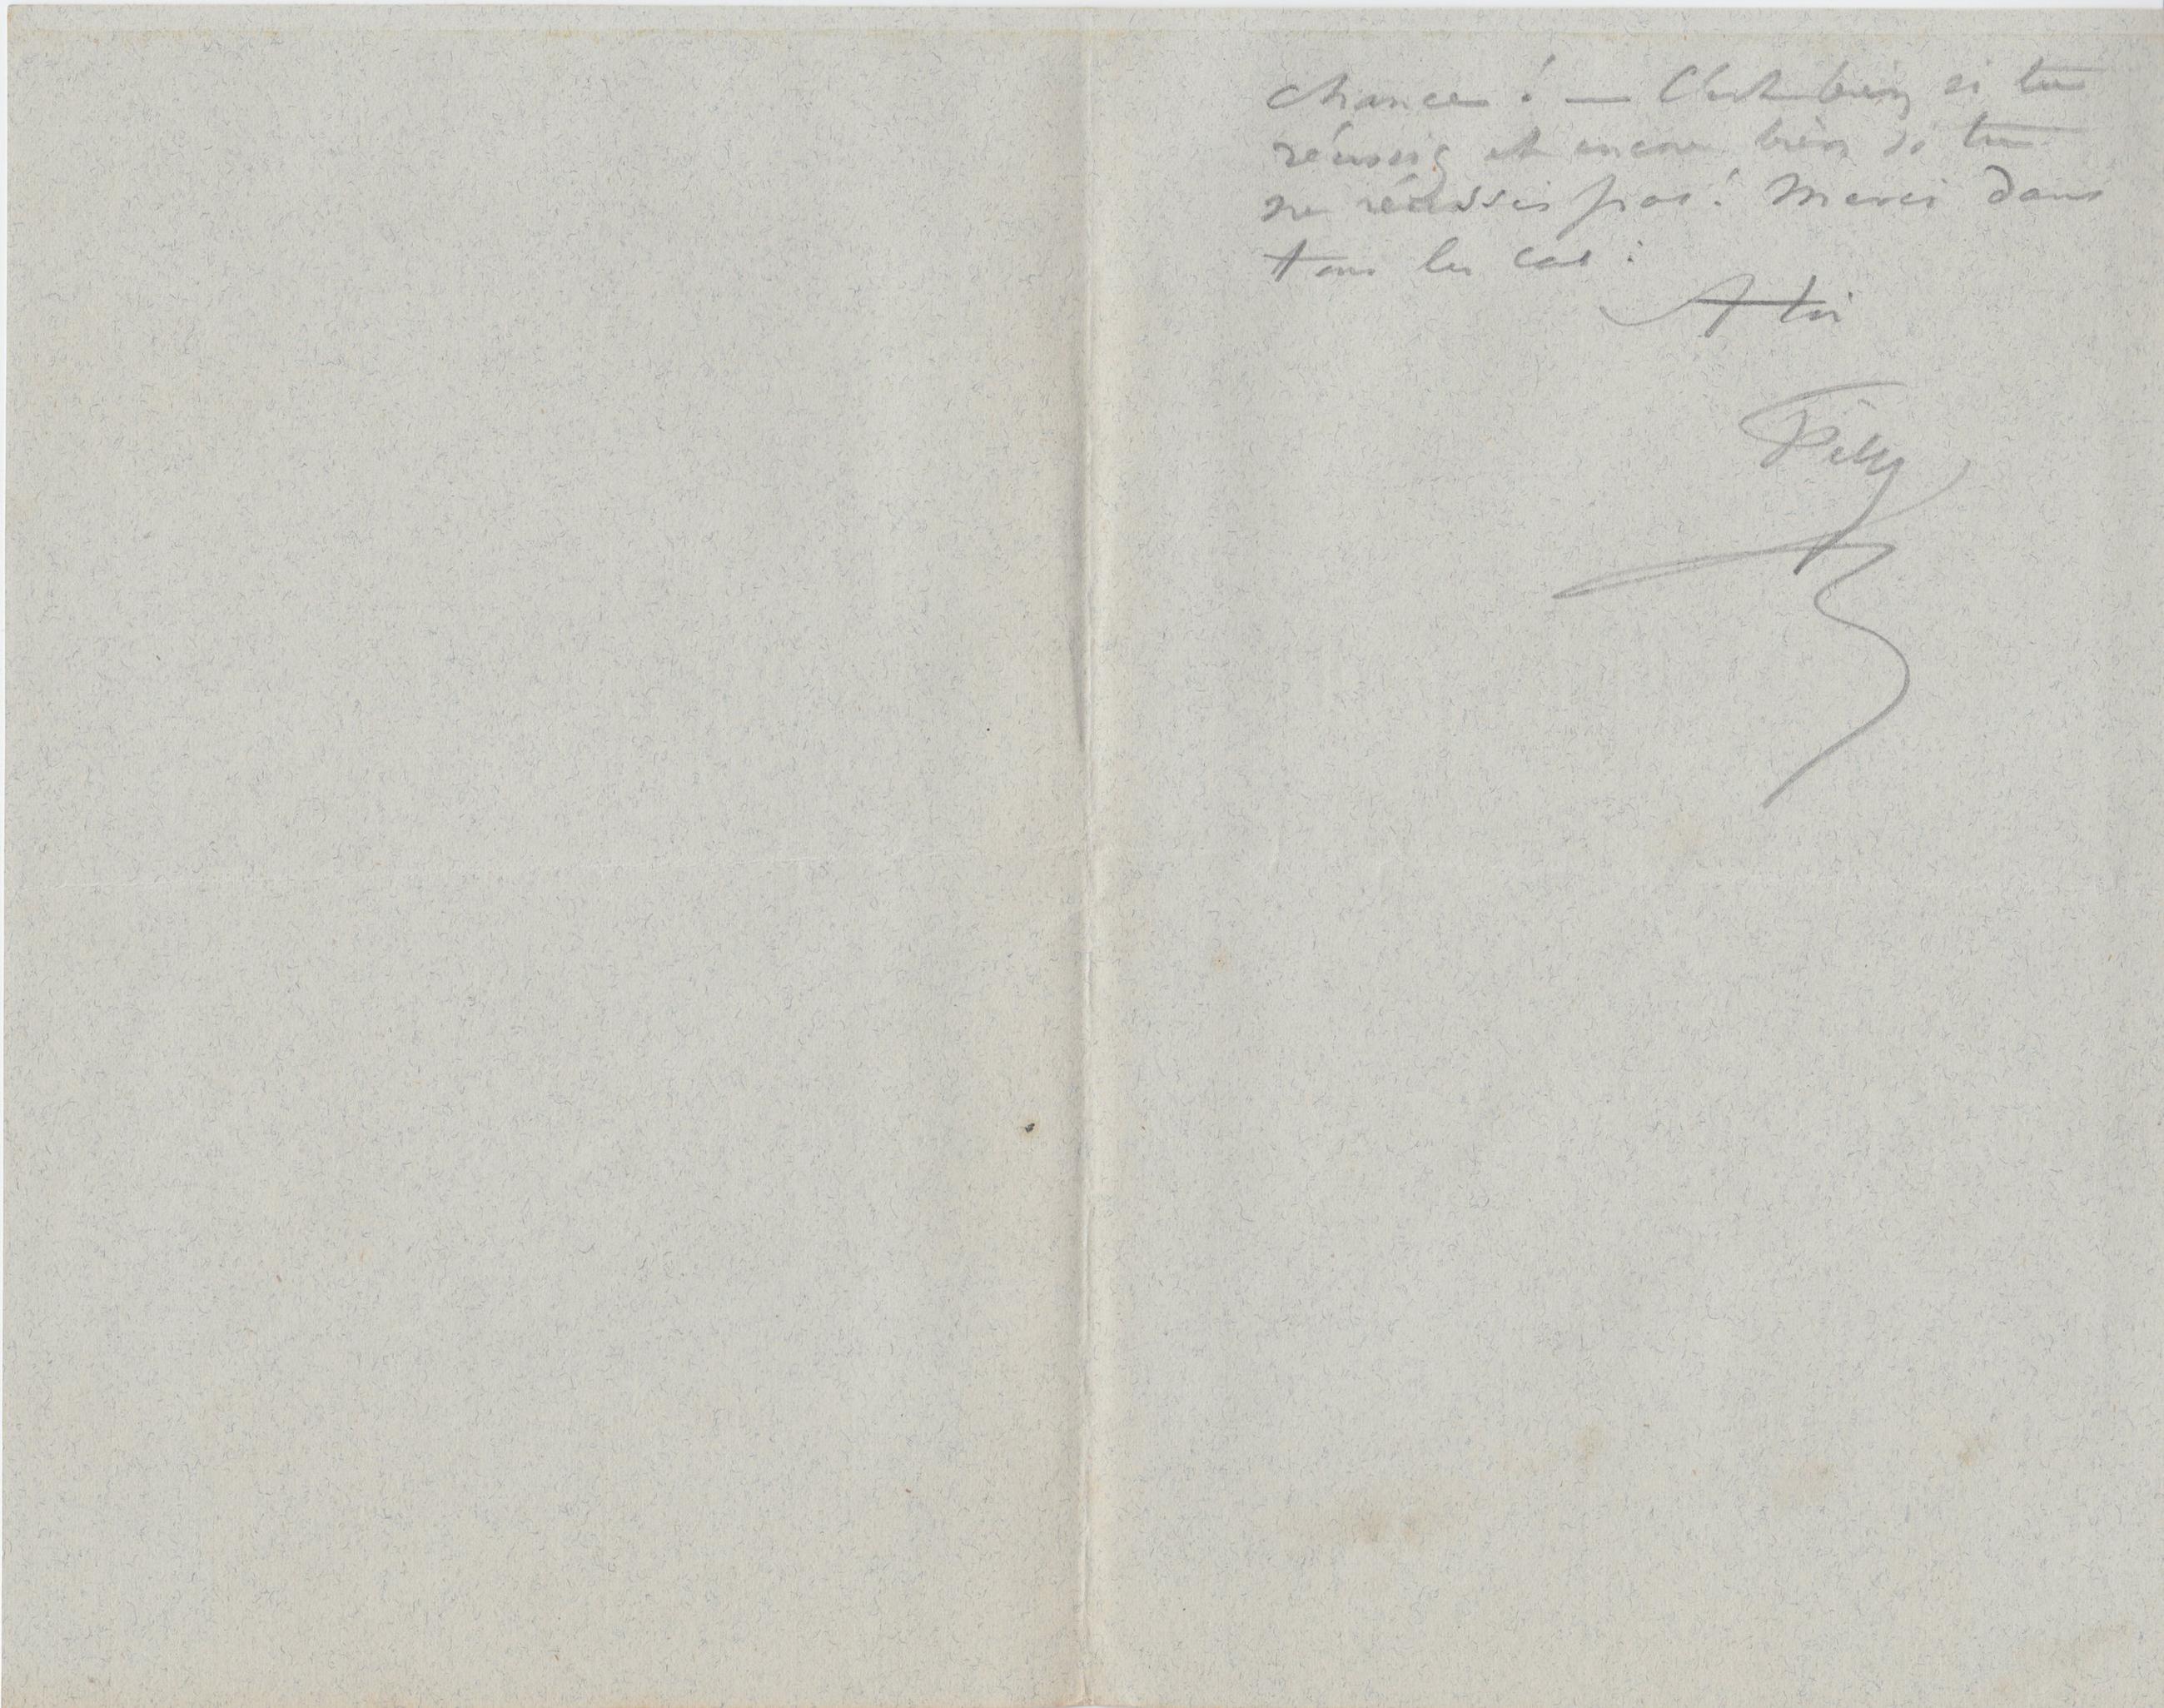 chance ! — C'est bien si tu
réussis et encore bien si tu
ne réussis pas ! Merci dans
tous les cas :
A toi